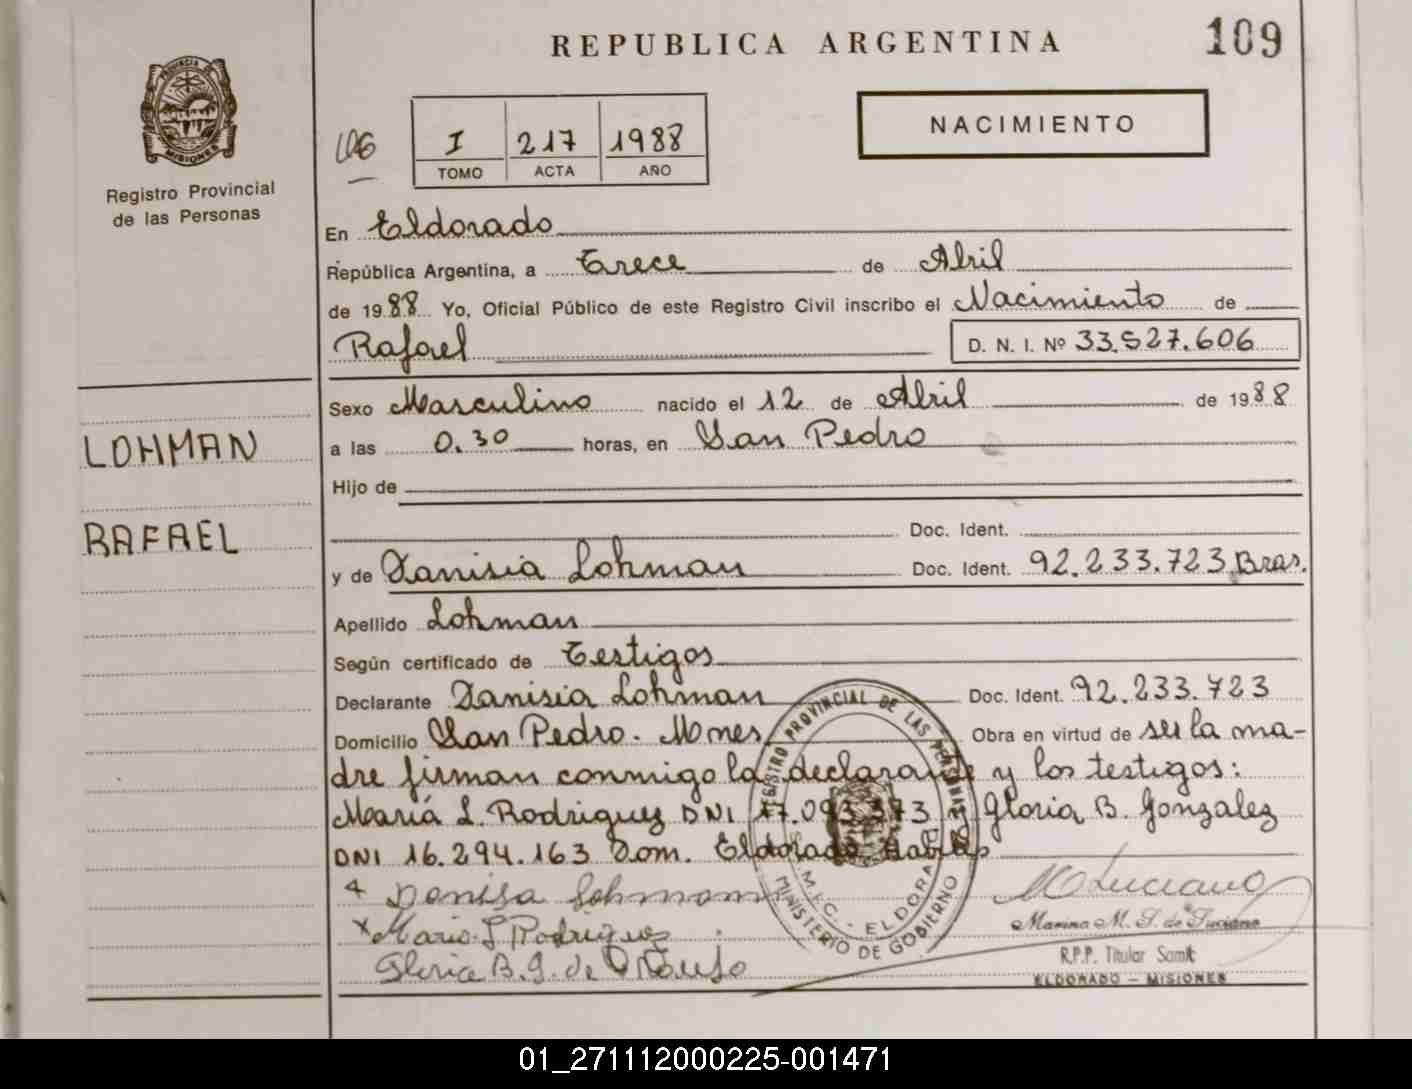 REPUBLICA ARGENTINA
109
PROVINCIA DE
MISIONES
Registro Provincial
de las Personas
I 217 1988
TOMO ACTA AÑO
NACIMIENTO
En Eldorado
República Argentina, a Trece de Abril
de 1988 Yo, Oficial Público de este Registro Civil inscribo el Nacimiento de
Rafael D. N. I. Nº 33.527.606
Sexo Masculino nacido el 12 de Abril de 1988
a las 0.30 horas, en San Pedro
Hijo de
Doc. Ident.
y de Danisia Lohman Doc. Ident. 92.233.723 Bras.
Apellido Lohman
Según certificado de Testigos
Declarante Danisia Lohman Doc. Ident. 92.233.723
Domicilio San Pedro. Mnes Obra en virtud de ser la ma-
dre firman conmigo la declarante y los testigos:
María L. Rodriguez DNI 17.093.373 y Gloria B. Gonzalez
DNI 16.294.163 Dom. Eldorado
Denisa Lohmann
Maria L Rodriguez
Gloria B. G. de
LOHMAN
RAFAEL
REGISTRO PROVINCIAL DE LAS PERSONAS
ELDORADO
MINISTERIO DE GOBIERNO
M Luciano
Marina M. S. de Luciano
R.P.P. Titular Samit
ELDORADO - MISIONES
01_271112000225-001471